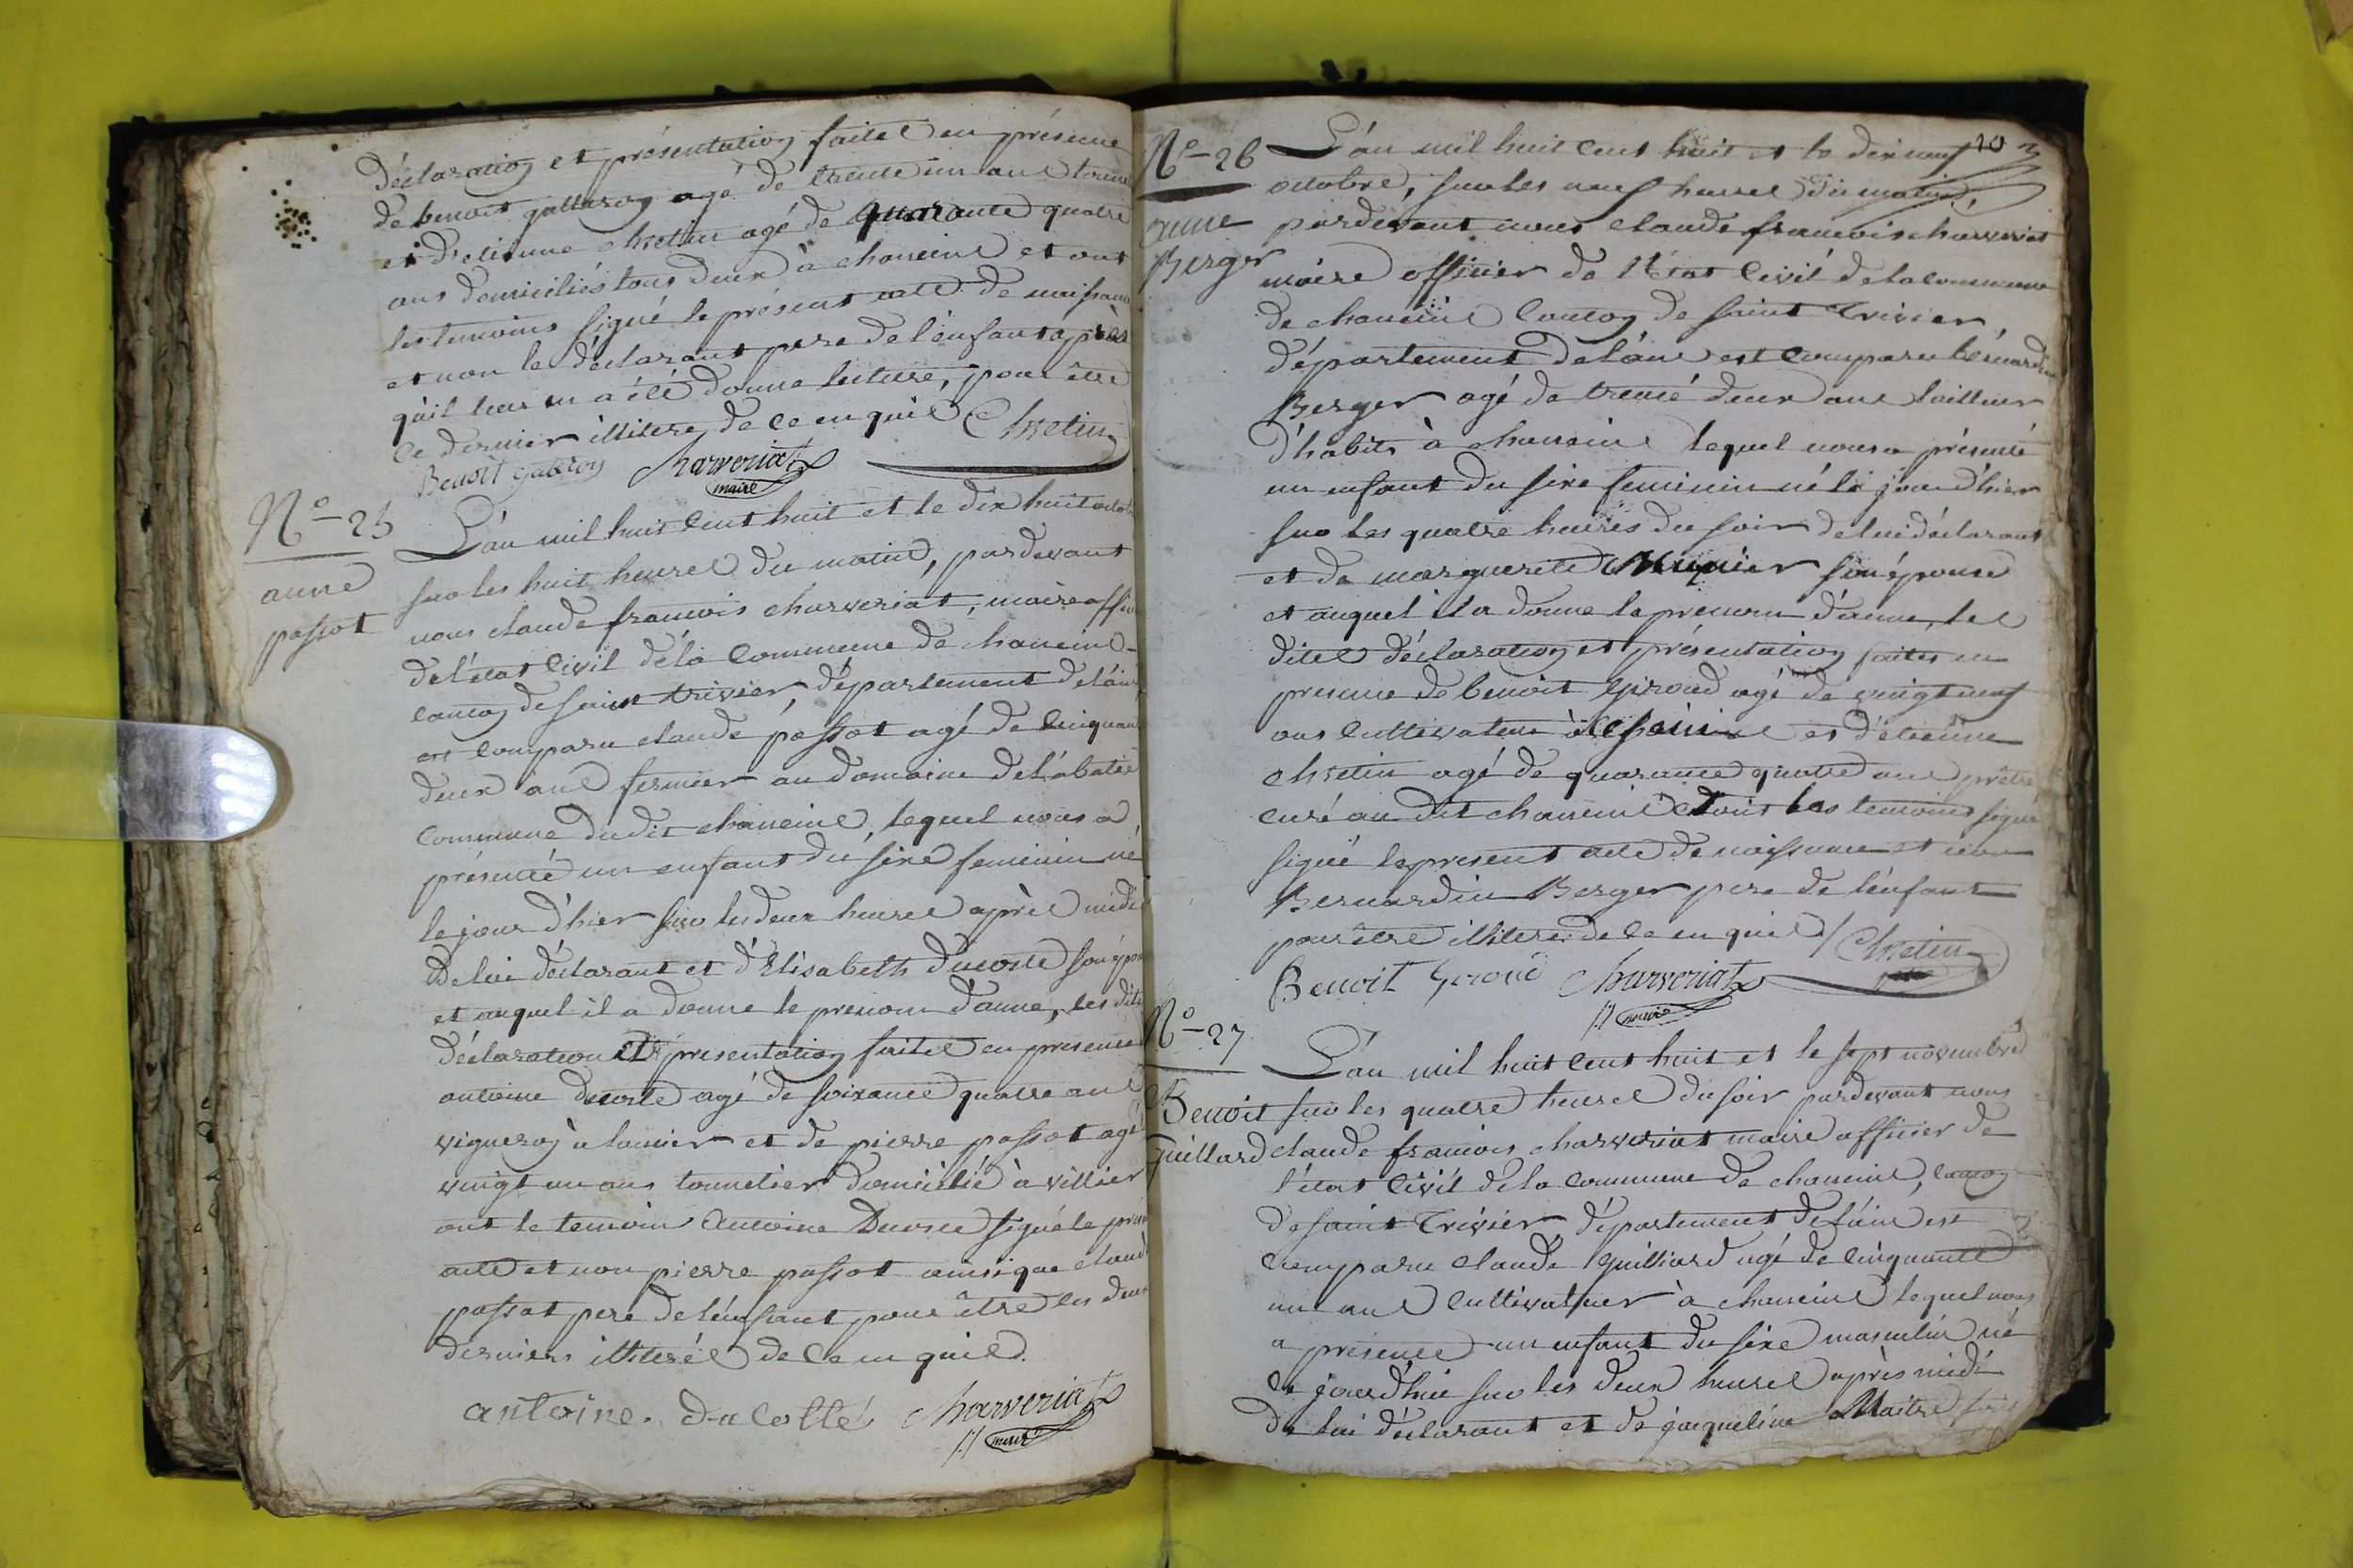 déclaration et présentation faite en présence
de benoit galleron agé de trente un ans
et d'etienne chretin agé de quarante quatre
ans domiciliés tous deux à chaneins et ont
les temoins signé le présent acte de naissance
et non le déclarant pere de l'enfant après
qu'il leur en a été donné lecture, pour être
ce dernier illitere, de ce enquis Chretin
Benoit Charveriat
maire
N° 25
anne
passot
L'an mil huit cent huit et le dix huit
sur les huit heures du matin, pardevant
nous claude francois charveriat, maire
de l'état civil de la commune de chaneins
canton de saint trivier, département de l'ain
est comparu claude passot agé de cinquante
deux ans fermier au domaine de
commune dudit chaneins, lequel nous a
présenté un enfant du sexe feminin né
le jour d'hier sur les deux heures après midi
de lui déclarant et d'Elisabeth ducoste
et auquel il a donné le prenom d'anne, les
déclaration et presentation faites en presence
antoine ducoste agé de soixante quatre ans
vigneron à lancier et de pierre passot agé
vingt un ans tonnelier domicilié à villier
ont le temoin Antoine signé le
acte et non pierre passot ainsi que
passot pere de l'enfant pour être les deux
derniers illiteré de ce enquis.
antoine. ducotté Charveriat
maire
N° 26
anne
Berger
20
L'an mil huit cent huit et le dix neuf
octobre, sur les neuf heures du matin,
pardevant nous claude francois charveriat
maire officier de l'état civil de la commune
de chaneins canton de saint Trivier
département de l'ain est comparu
Berger agé de trente deux ans tailleur
d'habits à chaneins lequel nous a présenté
un enfant du sexe feminin né le jour d'hier
sur les quatre heures du soir de lui déclarant
et de marguerite son épouse
et auquel il a donné le prenom d'anne, les
dites déclaration et présentation faites en
presence de benoit giroud agé de vingt neuf
ans cultivateur à et d'étienne
chretin agé de quarante quatre ans prêtre
curé au dit chaneins dont les temoins signé
signé le present acte de naissance et non
Bernardin Berger pere de l'enfant
pour être illiteré de ce enquis / Chretin
Benoit Charveriat
maire
N° 27
Benoit
guillard
L'an mil huit cent huit et le sept novembre
sur les quatre heures du soir pardevant nous
claude francois charveriat maire officier de
l'état civil de la commune de chaneins, canton
de saint Trivier, département de l'ain est
comparu claude guilliard agé de cinquante
un ans cultivateur à chaneins lequel nous
a présenté un enfant du sexe masculin né
ce jourd'hui sur les deux heures après midi
de lui déclarant et de jacqueline Maitre